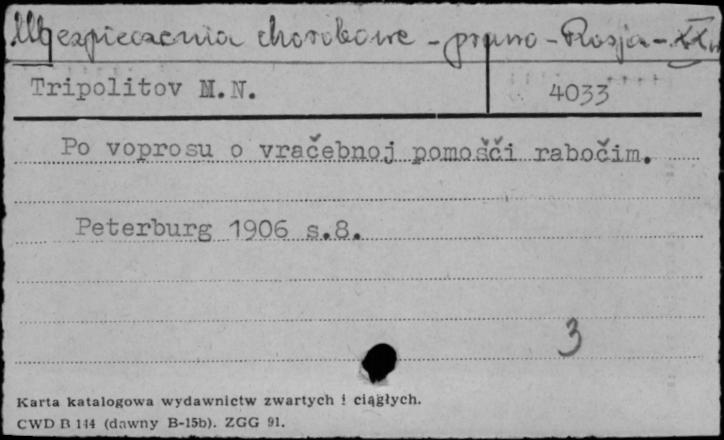 Ubezpieczenia chorobowe - prawo - Rosja - XX w
Tripolitov M.N. 4033
Po voprosu o vračebnoj pomošči rabočim.
Peterburg 1906 s.8.
3
Karta katalogowa wydawnictw zwartych i ciągłych.
CWD B 144 (dawny B-15b). ZGG 91.